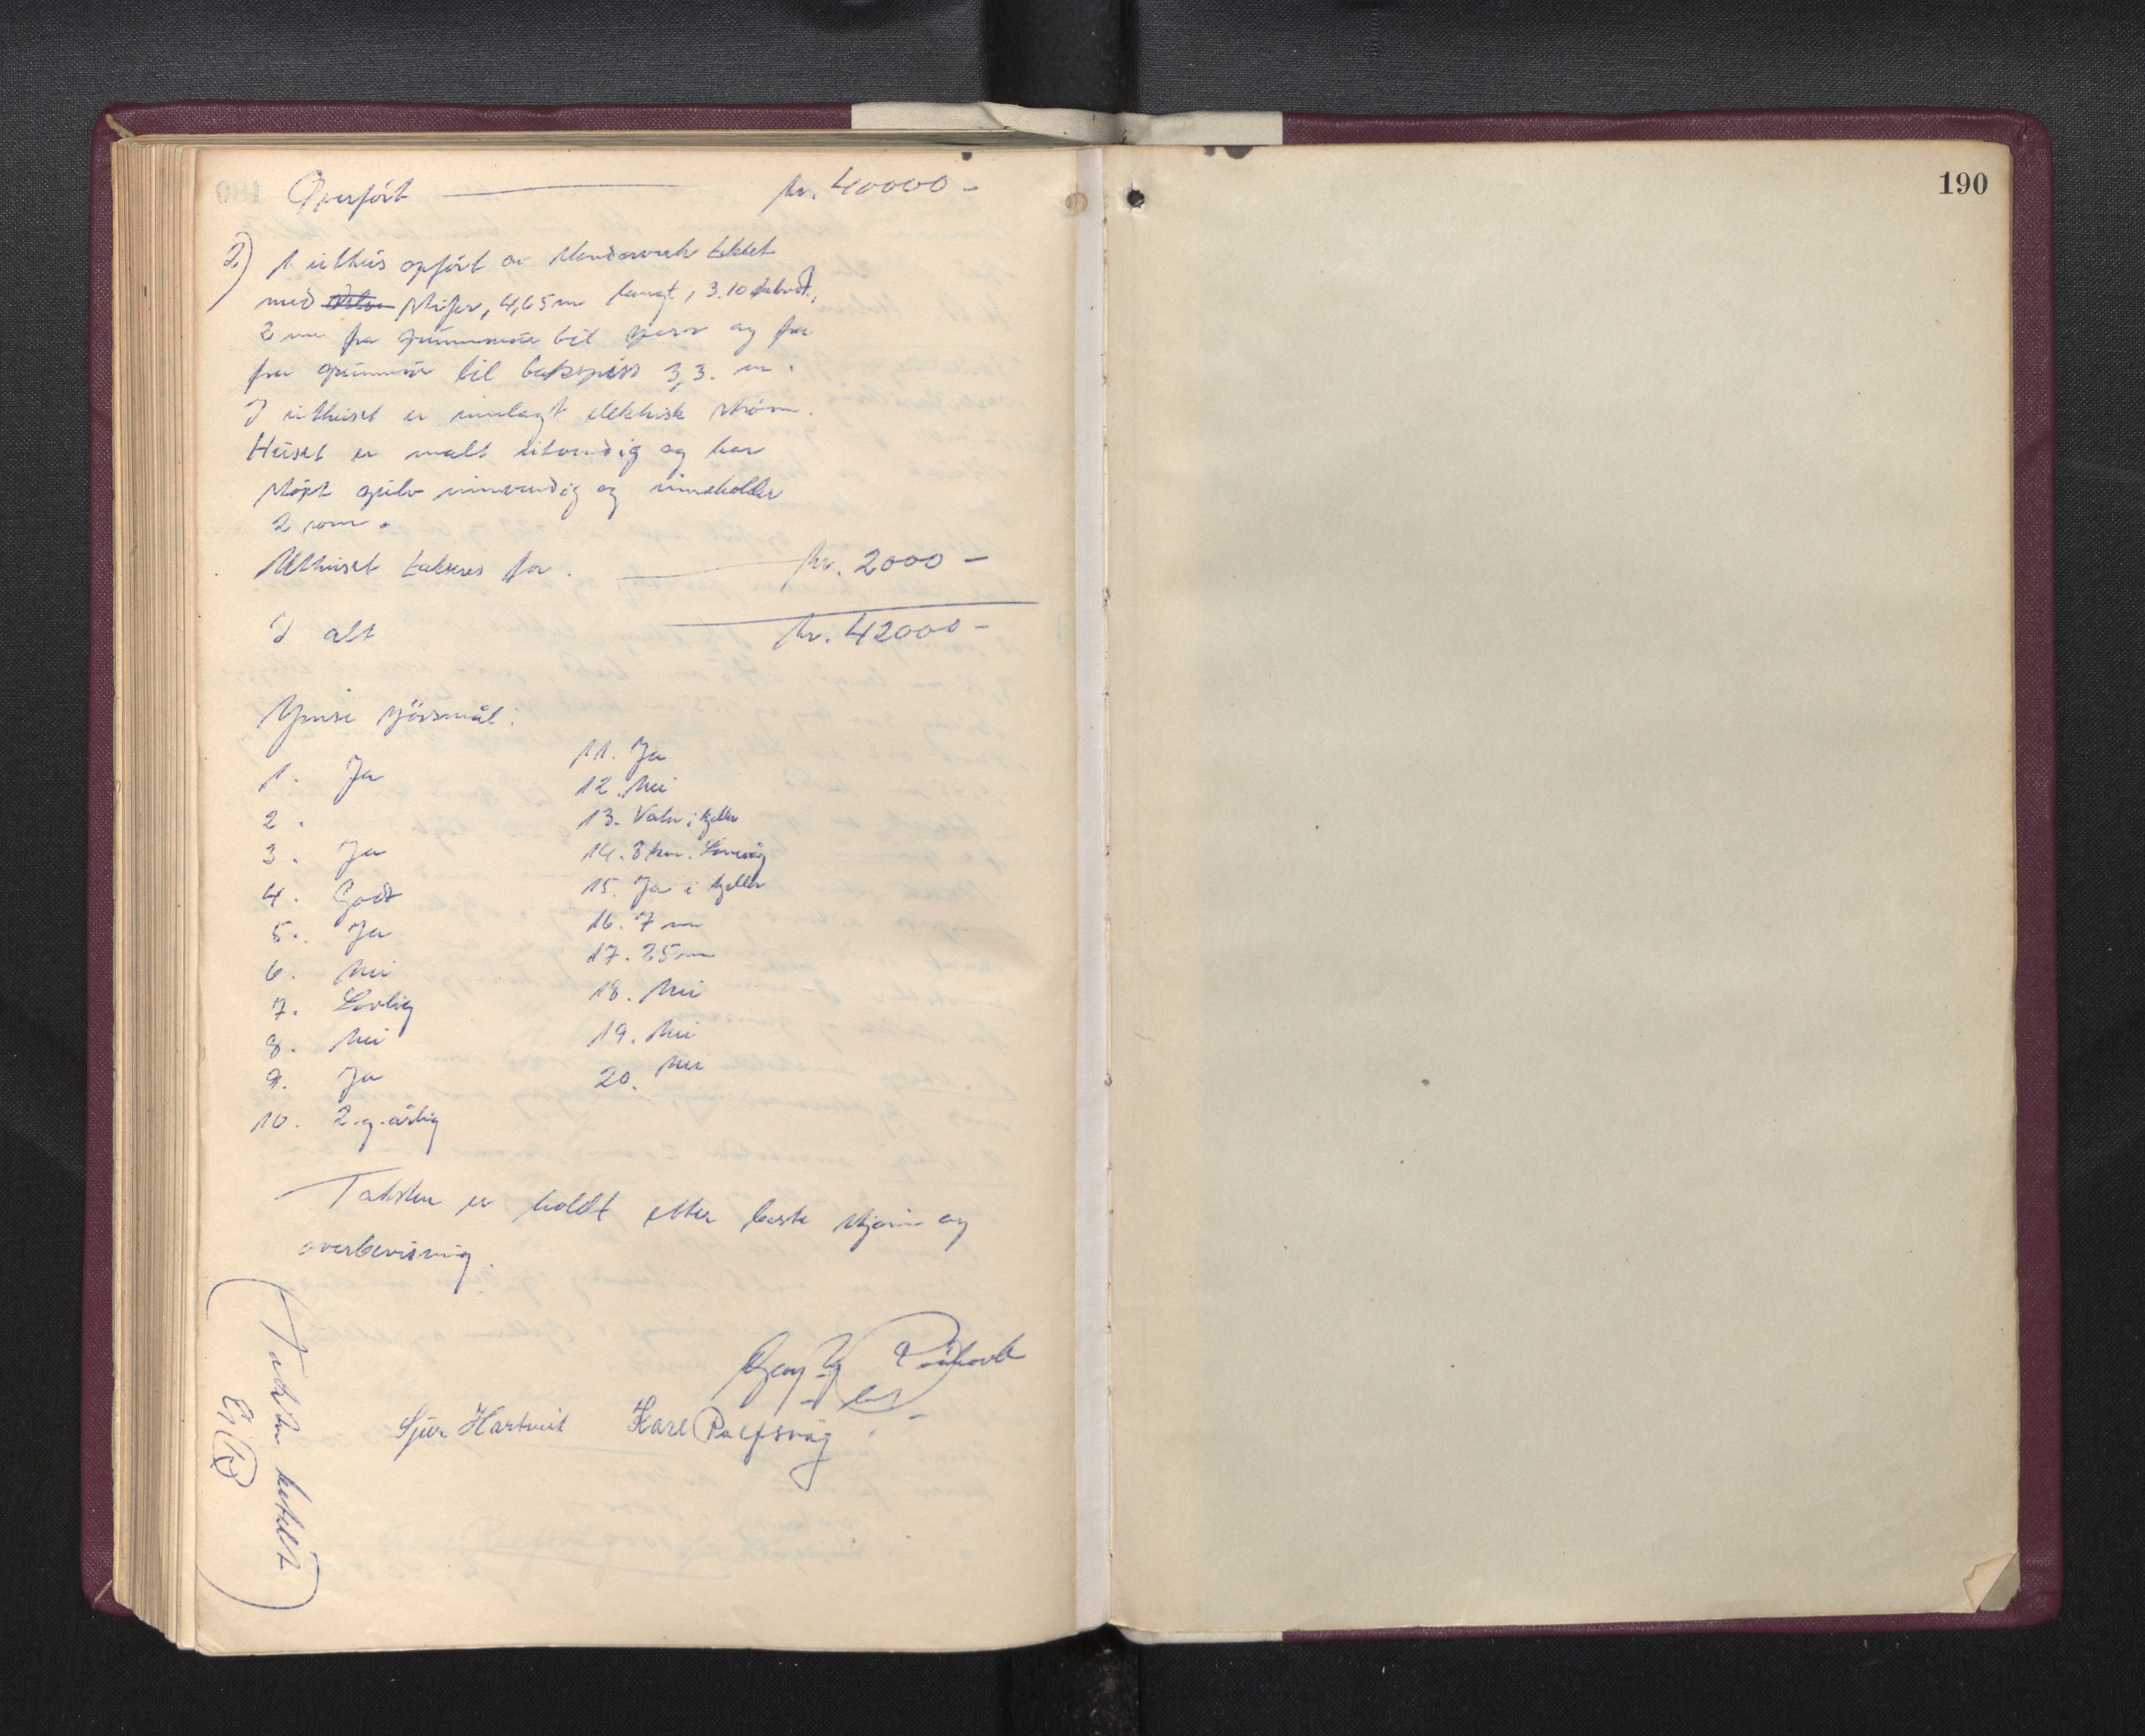 190
Overført kr. 40000 -
2) 1 uthus opført av Stenderverk tekket
med skifer, 4,65 m langt, 3.10
2 m fra grunnmur til gess og fra
fra grunnmur til bakspiss 3,3. m.
I uthuset er innlagt elektrisk strøm.
Huset er malt utvendig og har
støpt gulv innvendig og inneholder
2 rom.
Uthuset takseres for. kr. 2000 -
I alt kr. 42000 -
spörsmål:
1. Ja
2.
3. Ja
4. Godt
5. Ja
6. Nei
7. Lovlig
8. Nei
9. Ja
10. 2.g. årlig
11. Ja
12. Nei
13. Vatn i kjeller
14. 8 km.
15. Ja i kjeller
16. 7 m
17. 25 m
18. Nei
19. Nei
20. Nei
Taksten er holdt etter beste skjønn og
overbevisning.
Sjur Hartveit Karl
Takten betalt